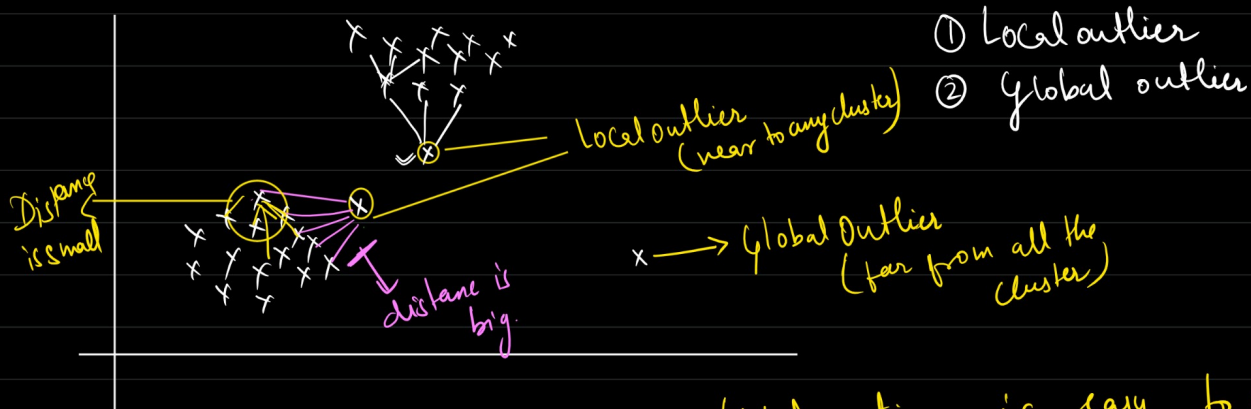 ① Local outlier
② Global outlier
Local outlier
(near to any cluster)
Distance
is small
Global Outlier
(far from all the
cluster)
distane is
big.
is easy to